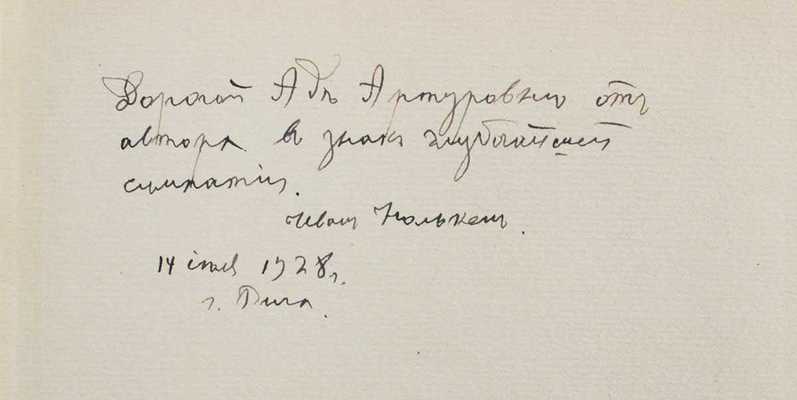 Дорогой Адѣ Артуровнѣ отъ
автора в знакъ глубочайшей
симпатіи.
Иван Нолькен.
14 1928 г.
г. Рига.